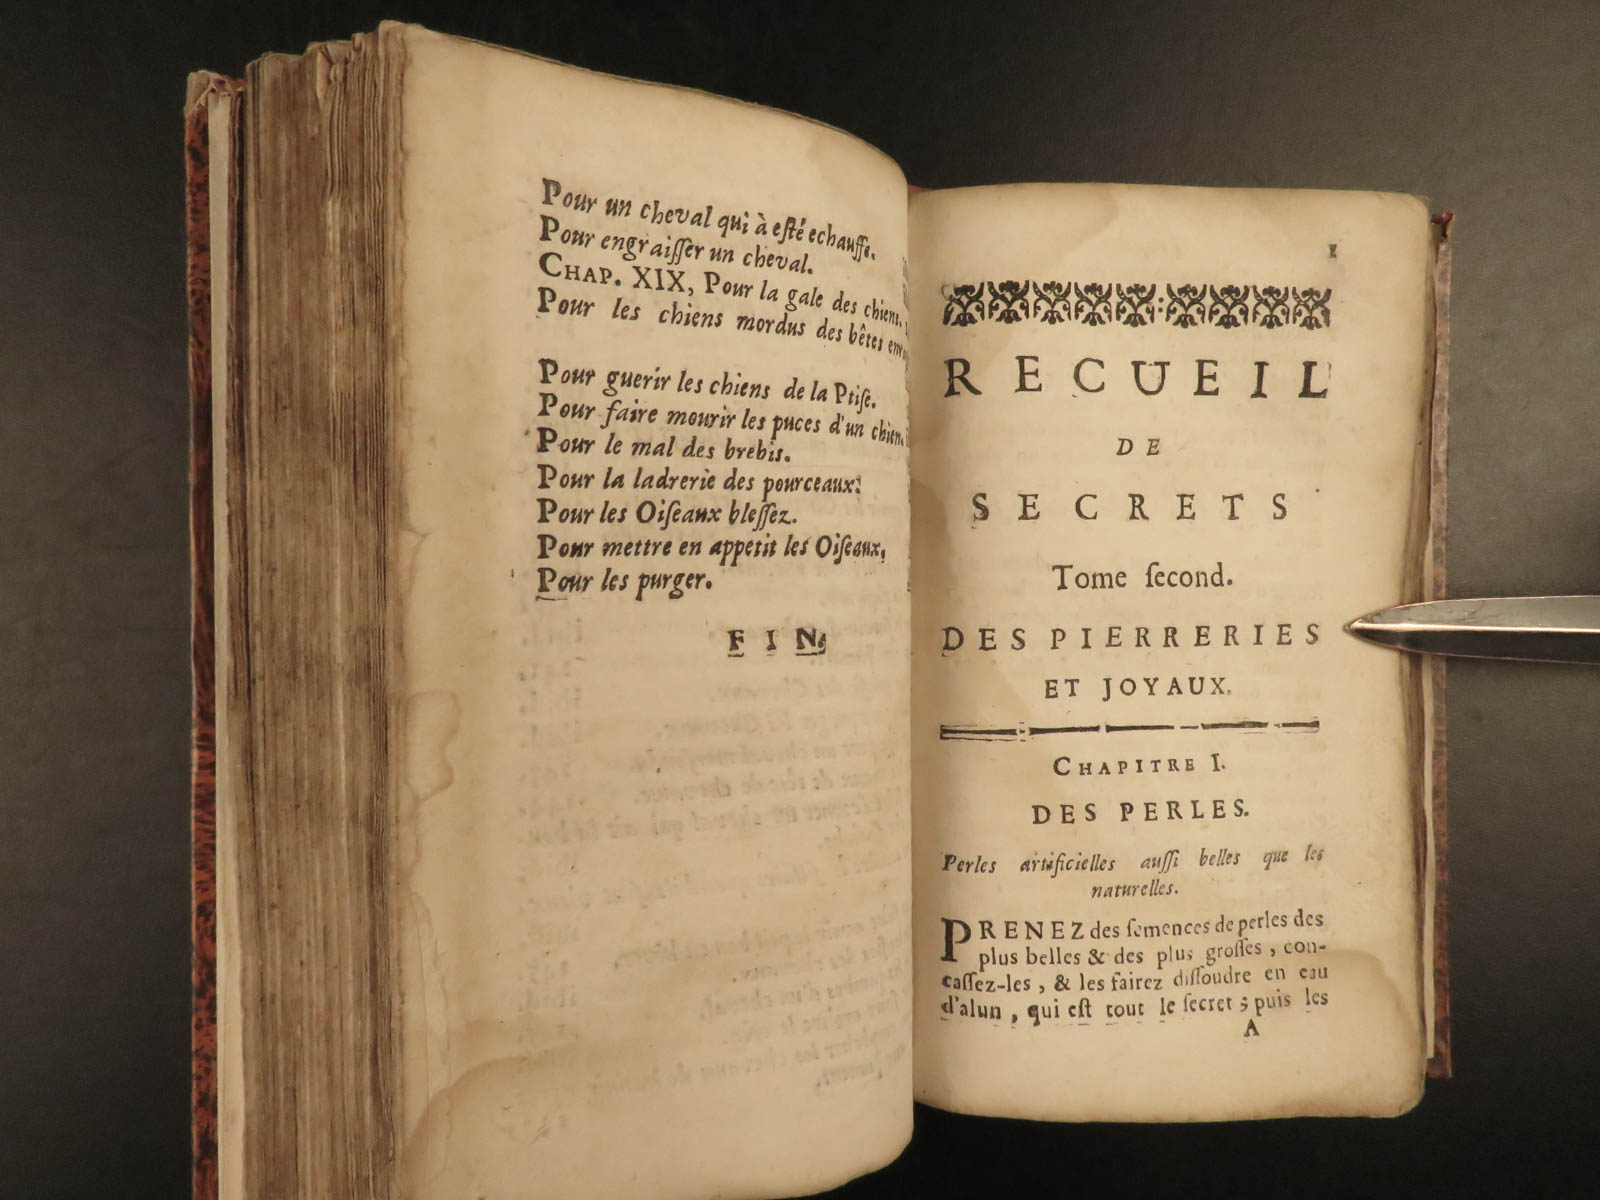 Pour un cheval qui à eſté echauffe.
Pour engraiſſer un cheval.
CHAP. XIX, Pour la gale des chiens.
Pour les chiens mordus des bêtes
Pour guerir les chiens de la Ptiſe.
Pour faire mourir les puces d'un chien.
Pour le mal des brebis.
Pour la ladrerie des pourceaux:
Pour les Oiſeaux bleſſez.
Pour mettre en appetit les Oiſeaux,
Pour les purger.
FIN.
1
RECUEIL
DE
SECRETS
Tome ſecond.
DES PIERRERIES
ET JOYAUX.
CHAPITRE I.
DES PERLES.
Perles artificielles auſſi belles que les
naturelles.
PRENEZ des ſemences de perles des
plus belles & des plus groſſes, con-
caſſez-les, & les fairez diſſoudre en eau
d'alun, qui eſt tout le ſecret; puis les
A